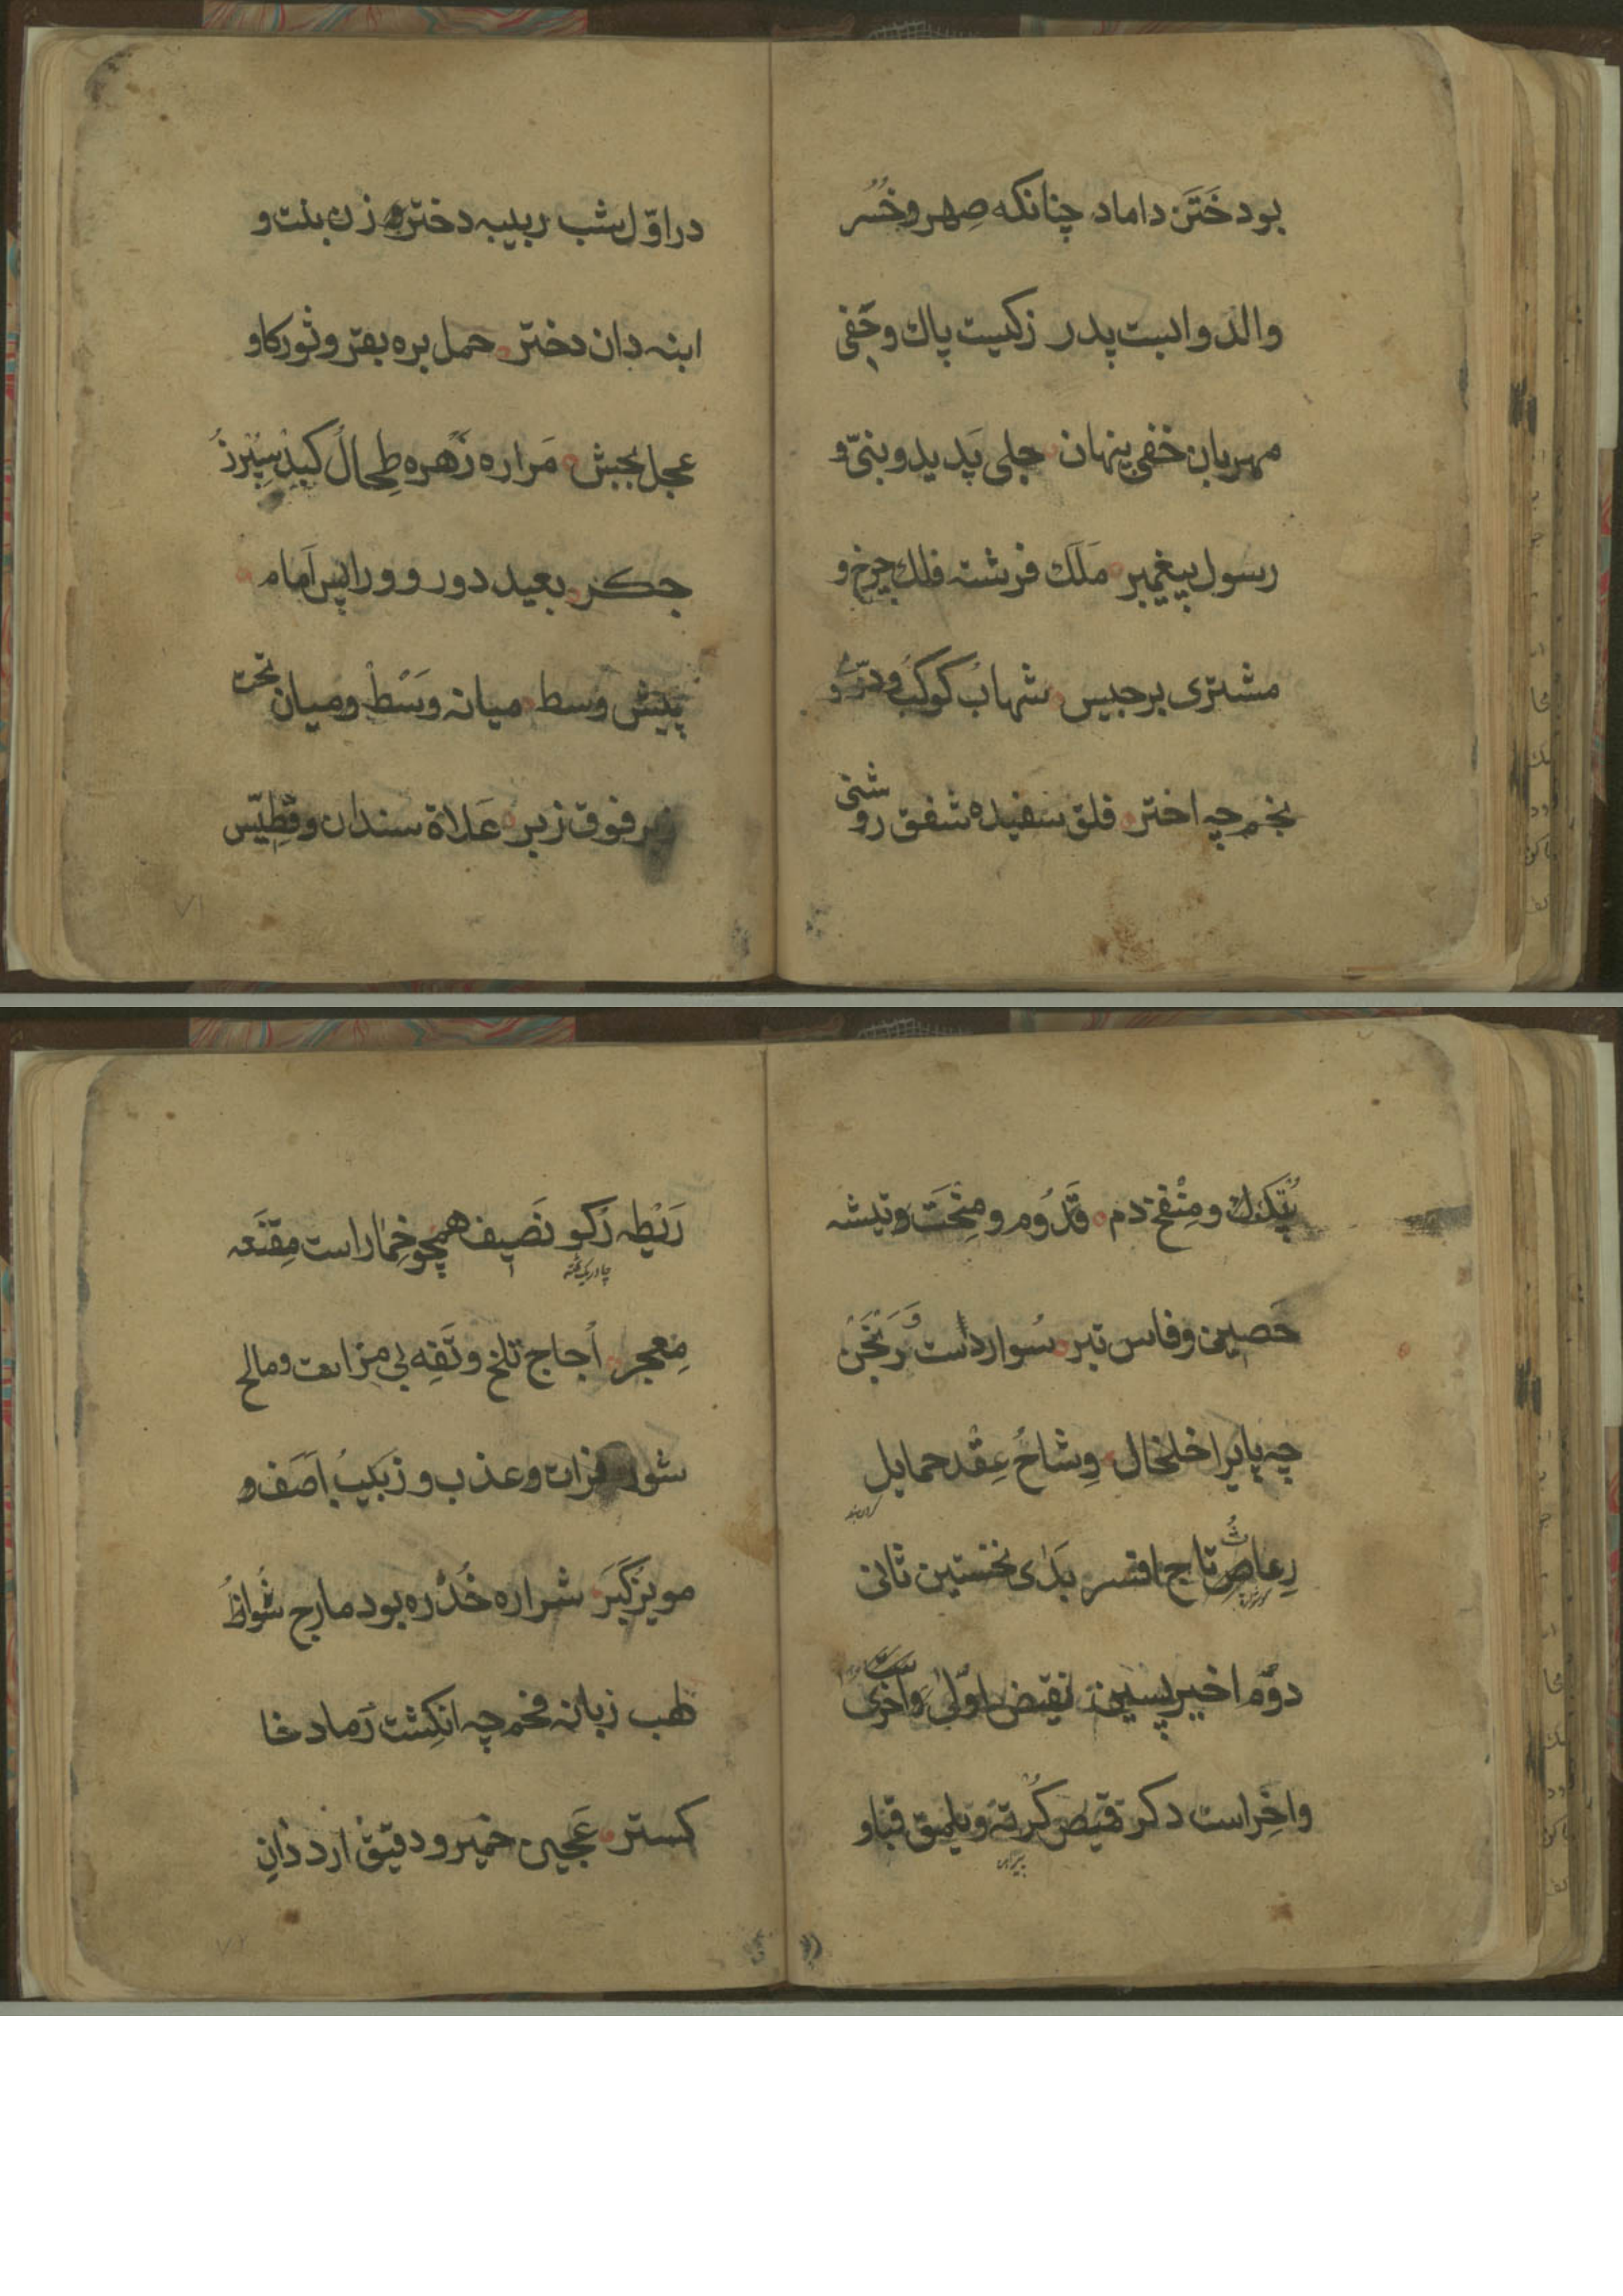 بود خَتَن داماد چنانکه صِهر و خُسُر
والد و ابست پدر زکیست پاك و حَفی
مهربان خفی پنهان جلی پَدید و بنیّ و
رسول پیغمبر مَلَك فرشته فلك چرخ و
مشتری برجیس شهابُ کوکبُ و درّیُّ و
نجم چه اختر فلق سفیده شفق روشنی
در اوّل شب ربیبه دختره زن بنت و
ابنه دان دختر حمل بره بقر و ثور کاو
عجل بجش مَراره زَهره طِحالُ کبد سِپُرز
جکر بعید دور و ورا پس اَمام
پیش وسط میانه وَسْط و میان تحت
زیر فوق زبر عَلاة سندان و فِطّیس
پُتک و مِنْفخ دم قَدُوم و مِنْحَت و تیشه
حَصین و فاس تبر سُوار دست وَرَنْجَنْ
چه پایرا خلخال وِشاحُ عِقْد حمایل
رِعاثُ تاج افسر بَدْی نخستین ثانی
دوّم اخیر پسین نقیض اُوْلیٰ و اُخریٰ
و اخِر است دکر قمیص کُرته و یلمق قبا و
پیراهن
رَیْطه رکو نَصیف همچو خِمار است مِقنَعه
معِجر اُجاج تلخ و تَفِه بی مزا بعت و مالح
شور فرات و عذب و زَبیبُ اَصَف و
مویز کَبَر شراره خُدْره بود مارج شُواظُ
لهب زبانه فخم چه انکِشت رَماد خا
کستر عَجین خمیر و دقیق ارد دٰانِ